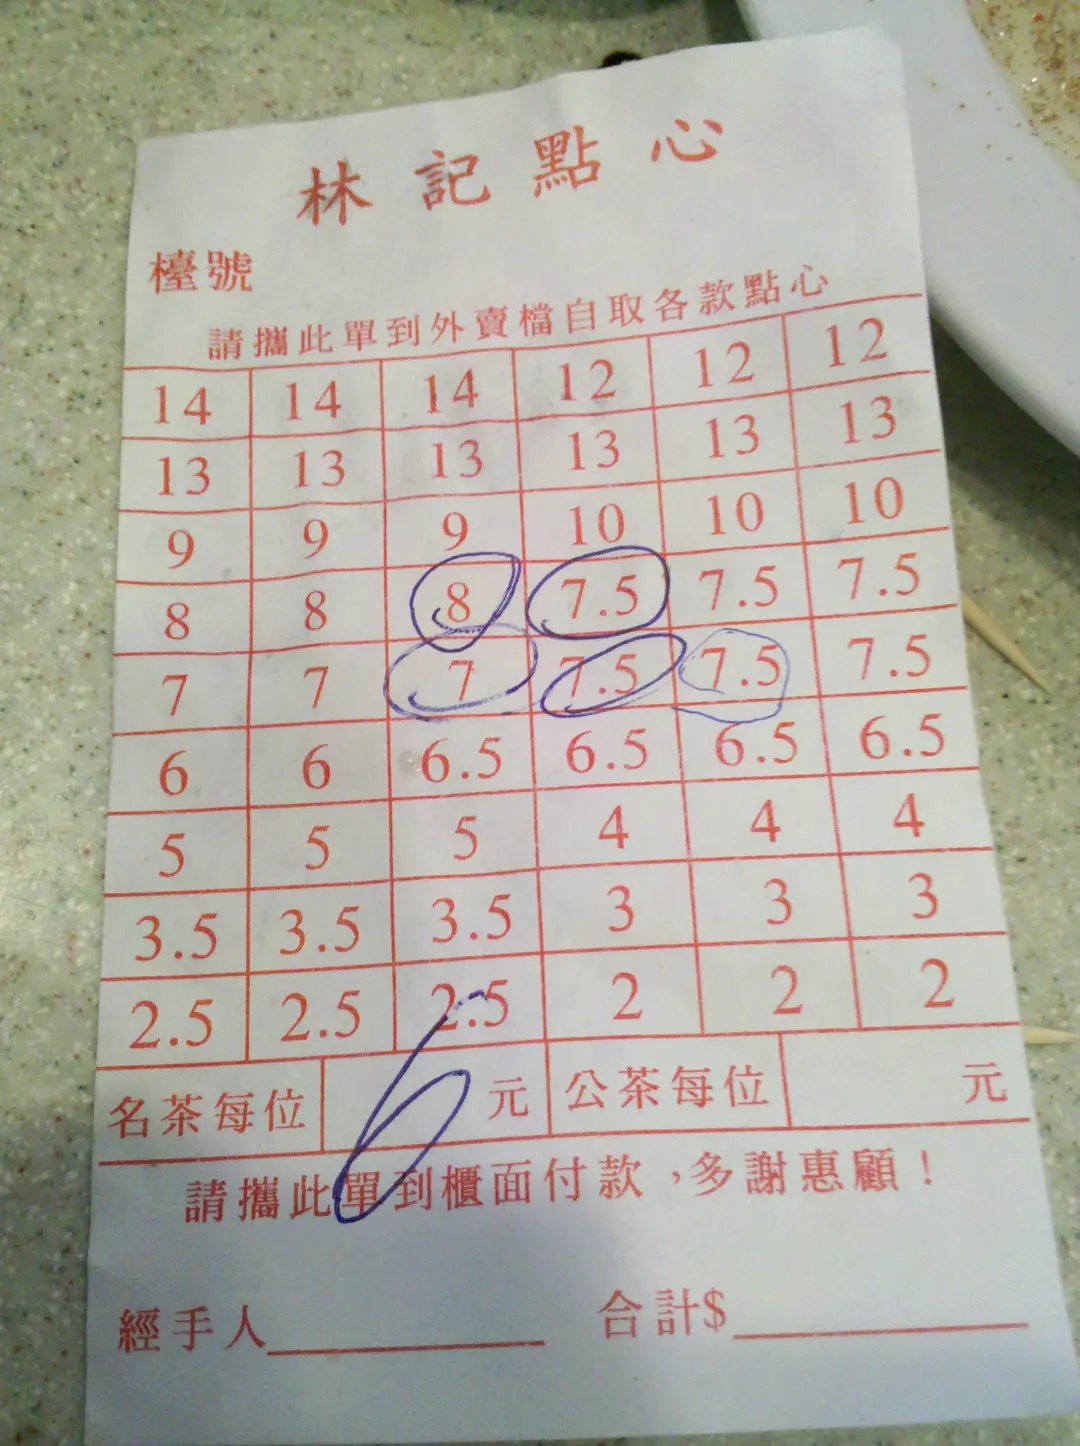 林記點心
檯號
請攜此單到外賣檔自取各款點心
14 14 14 12 12 12
13 13 13 13 13 13
9 9 9 10 10 10
8 8 8 7.5 7.5 7.5
7 7 7 7.5 7.5 7.5
6 6 6.5 6.5 6.5 6.5
5 5 5 4 4 4
3.5 3.5 3.5 3 3 3
2.5 2.5 2.5 2 2 2
名茶每位 6 元 公茶每位 元
請攜此單到櫃面付款，多謝惠顧！
經手人 合計$